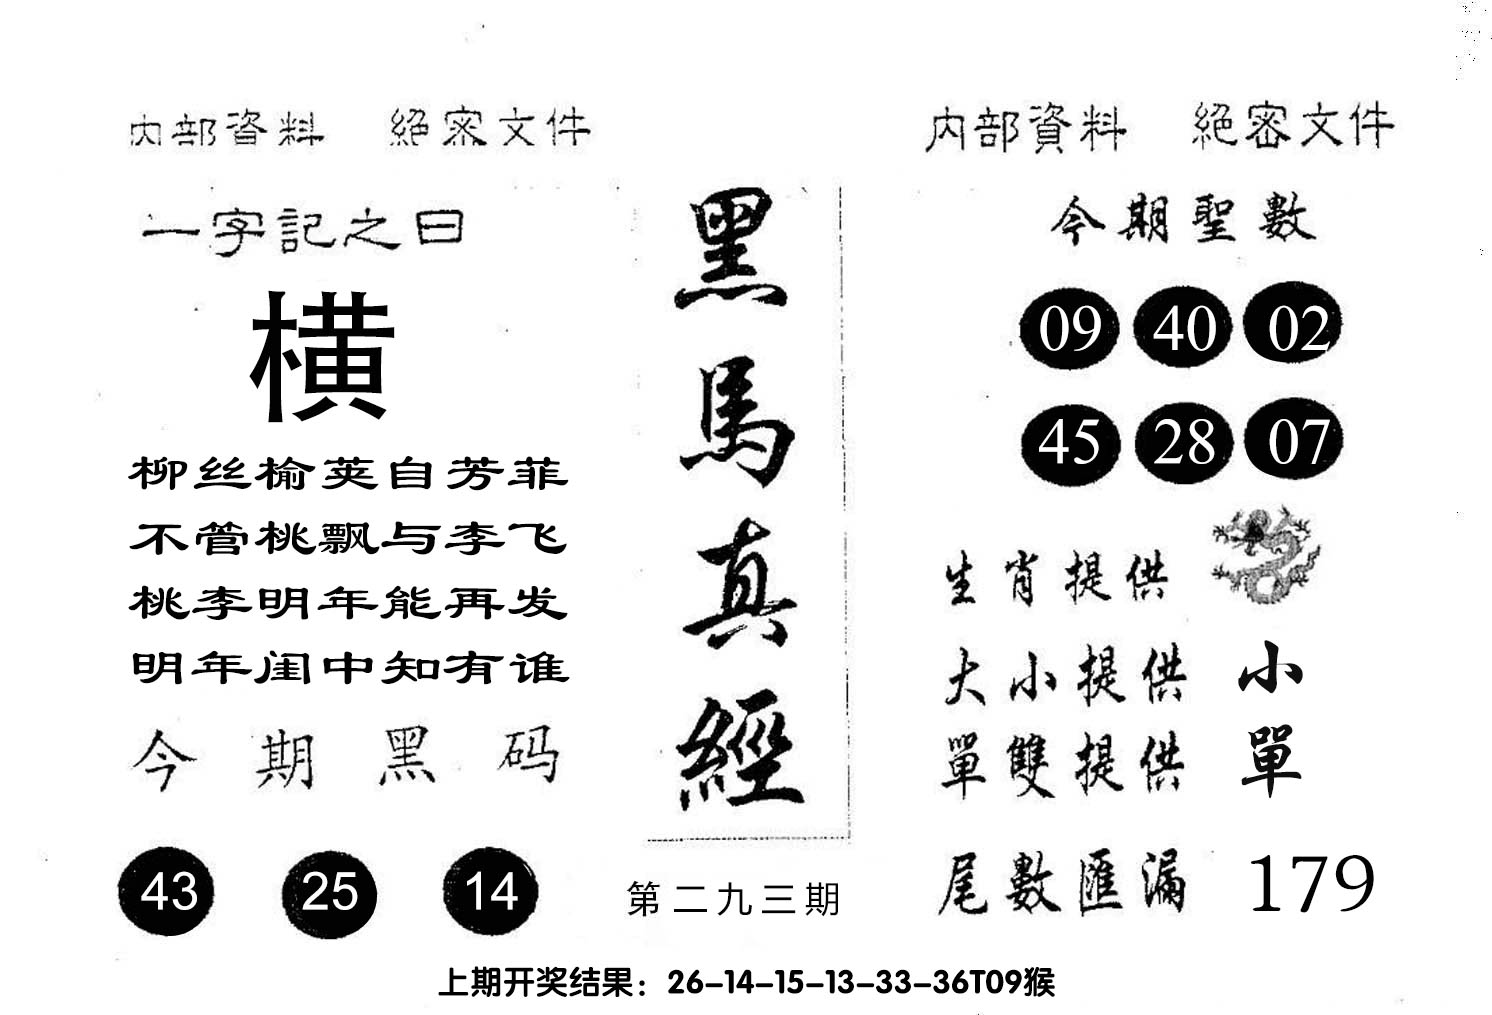 内部資料 絕密文件
一字記之曰
横
柳丝榆荚自芳菲
不管桃飘与李飞
桃李明年能再发
明年闺中知有谁
今期黑码
43 25 14
黑馬真經
第二九三期
内部資料 絕密文件
今期聖數
09 40 02
45 28 07
生肖提供
大小提供 小
單雙提供 單
尾數匯漏 179
上期开奖结果：26-14-15-13-33-36T09猴